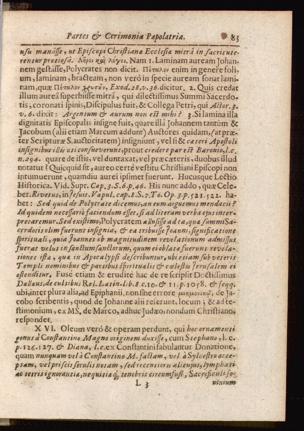 Partes & Cerimonia Papolatriæ. 85
usu manâsse, ut Episcopi Christianæ Ecclesiæ mitrâ in sacris ute-
rentur pretiosâ. Nam 1. Laminam aureum Johan-
nem gestâsse, Polycrates non dicit. enim in genere foli-
um, laminam, bracteam, non verò in specie auream sonat lami-
nam, quæ Exod. 28. v. 36. dicitur. 2. Quis credat
illum aurea superbiisse mitrâ, qui dilectissimus Summi Sacerdo-
tis, coronati spinis, Discipulus fuit, & Collega Petri, qui Actor. 3.
v. 6. dixit: Argentum & aurum non est mihi? 3. Si lamina illa
dignitatis Episcopalis insigne fuit, quare illi Johannem tantùm &
Jacobum (alii etiam Marcum addunt) Auctores quidam, (at præ-
ter Scripturæ S. auctoritatem) insigniunt, vel si & cæteri Apostoli
insignibus illis usi
n. 294. quare de istis, vel duntaxat, vel præ cæteris, duobus illud
notatur? Quicquid sit, aureo certè vestitu Christiani Episcopi non
intumuerunt, quamdiu aurei ipsimet fuerunt. Hucusque Lectio
Historica. Vid. Supr. Cap. 3. S. 6. p. 46. His nunc addo, quæ Cele-
ber. Rivetus, in Jesuit. Vapul. cap. 1. S. 7. T. Op. 3. p. 521. 522. ha-
bet: Sed quid de Polycrate dicemus, an eum arguemus mendacii?
Id quidem necessariò faciendum esset, si ad literam verba ejus inter-
pretaremur. Sed enimverò, Polycratem abusisse ad ea, quæ summi Sa-
cerdotis olim fuerunt insignia, & ea tribuisse Joanni, significatione
spirituali, quia Joannes ob magnitudinem revelationum admissus
fuerat velut in sanctum sanctorum, quum ei oblatæ fuerunt revela-
tiones istæ, quæ in Apocalypsi describuntur, ubi etiam sub veteris
Templi nominibus & partibus spiritualis & cœlestis Jerusalem ei
ostenditur. Fusè etiam & eruditè hac de re scripsit Doctissimus
Dallæus, de cultibus Rel. Latin. lib. 8. c. 10. & 11. p. 1078. & seqq.
ubi, inter plura alia, ad Epiphanii, non sine errore de Ja-
cobo scribentis, quod de Johanne alii referunt, locum; & ad te-
stimonium, ex MS. de Marco, adhuc Judæo, nondum Christiano,
respondet.
XVI. Oleum verò & operam perdunt, qui hoc ornamenti
genus à Constantino Magno originem duxisse, cum Stephano, l. c.
p. 126. 127. & Diana, l. c. ex Constantini fabulatur Donatione,
quam nunquam vel à Constantino M. factam, vel à Sylvestro acce-
ptam, vel priscis seculis notam, sed recentioris alicujus, sumptati
ac veteris ignorantia, nequitiaque, tenebris circumfusi, Sacrificuli fu-
L 3 visium